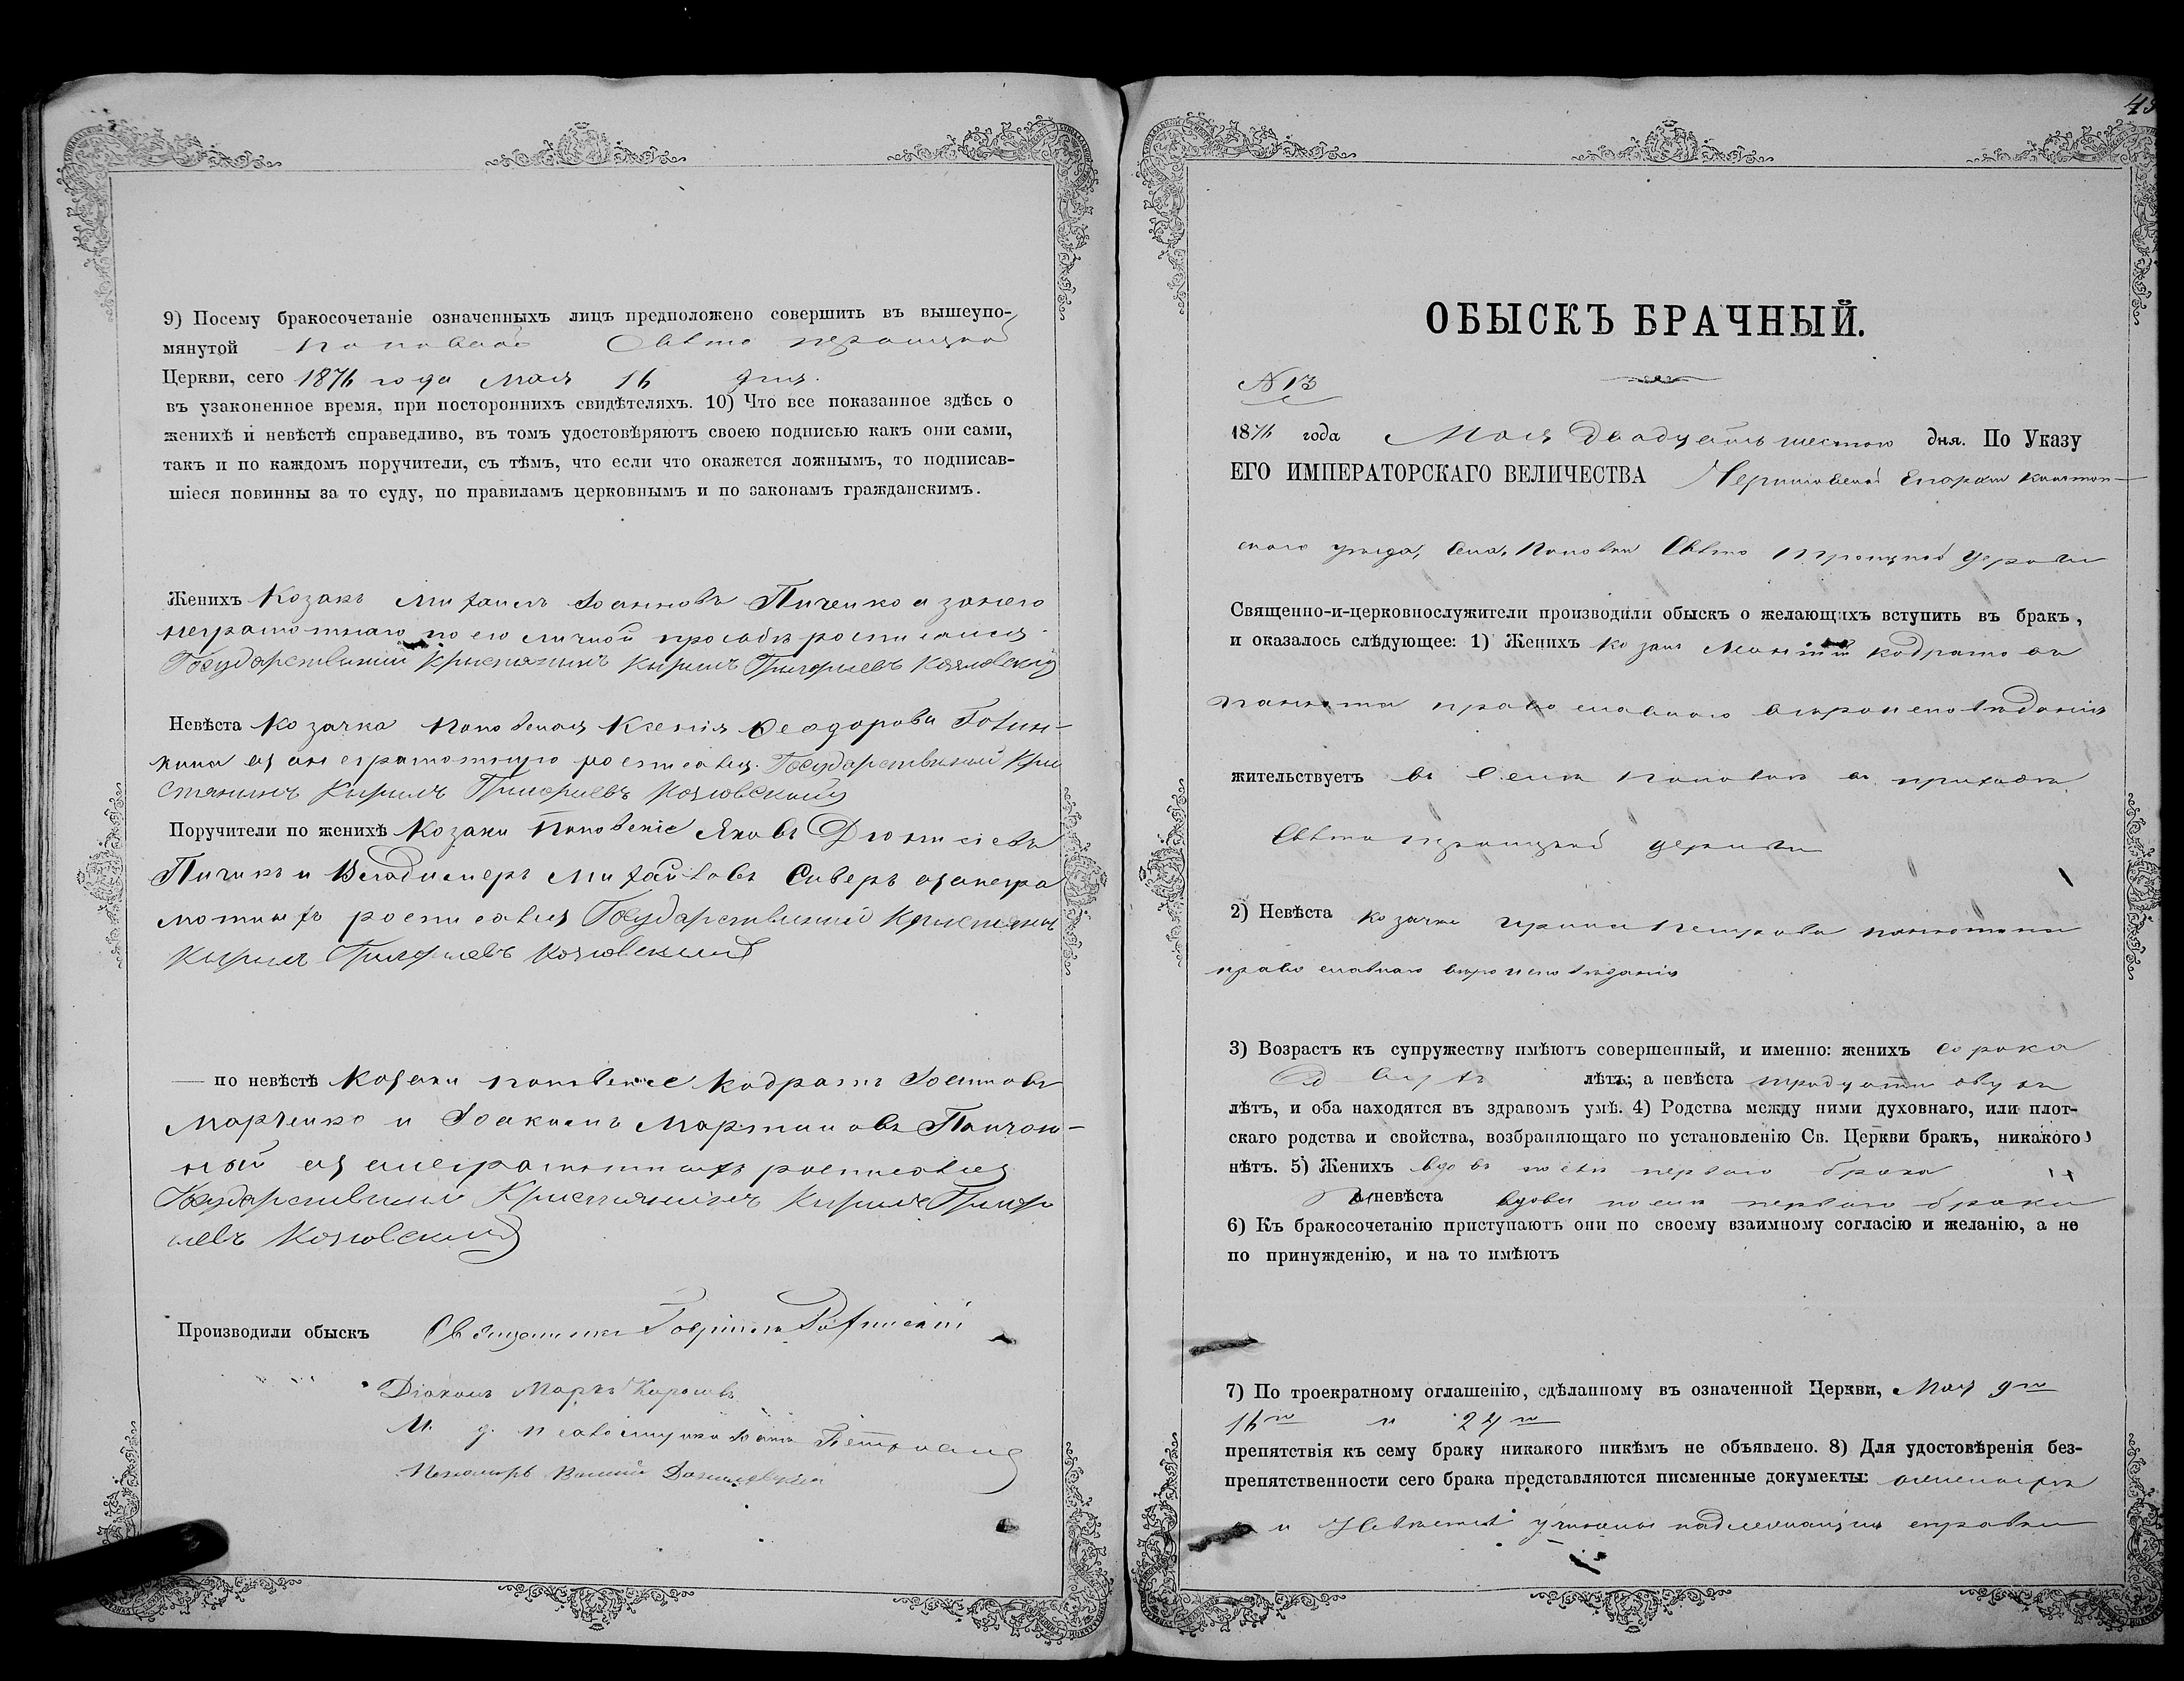 9) Посему бракосочетаніе означенныхъ лицъ предположено совершить въ вышеупо-
мянутой Поповской Свято Троицкой
Церкви, сего 1876 года Мая 16 дня.
въ узаконенное время, при постороннихъ свидѣтеляхъ. 10) Что все показанное здѣсь о
женихѣ и невѣстѣ справедливо, въ томъ удостовѣряютъ своею подписью какъ они сами,
такъ и по каждомъ поручители, съ тѣмъ, что если что окажется ложнымъ, то подписав-
шіеся повинны за то суду, по правиламъ церковнымъ и по законамъ гражданскимъ.
Женихъ Козакъ Михаилъ Іоанновъ а занего
неграмотнаго по его личной прозьбѣ росписался
Государственний Кристянинъ Кирилъ Григориевъ Козловский
Невѣста Козачка Поповская Ксенія Феодорова
неграмотную росписался Государственний Кри
стянинъ Кирилъ Григориевъ Козловский
Поручители по женихѣ Козаки Поповскіе Яковъ Діонисіевъ
и Владимеръ Михайловъ Сиверъ азанегра
мотныхъ росписался Государственний Кристянинъ
Кирилъ Григориевъ Козловский
— по невѣстѣ Козаки Поповскіе Кодратъ Іоанновъ
Марченко и Іоакимъ Мартиновъ
росписался
Государственний Кристиянинъ Кирилъ Григори
евъ Козловский
Производили обыскъ Священникъ Гавріилъ
Діаконъ Маркъ
И. д. псаломщика
Пономарь
ОБЫСКЪ БРАЧНЫЙ.
N 13
1876 года Мая двадцать шестого дня. По Указу
ЕГО ИМПЕРАТОРСКАГО ВЕЛИЧЕСТВА Черниговской Епархіи Конотоп-
ского уѣзда, села Поповки Свято Троицкой Церкви
Священно-и-церковнослужители производили обыскъ о желающихъ вступить въ бракъ,
и оказалось слѣдующее: 1) Женихъ козакъ Кодратовъ
православнаго вѣроисповѣданія
жительствуетъ въ селѣ Поповки въ приходѣ
Свято Троицкой церкви
2) Невѣста козачка Ирина Петрова
православнаго вѣроисповѣданія
3) Возрастъ къ супружеству имѣютъ совершенный, и именно: женихъ сорока
лѣтъ; а невѣста тридцати двухъ
лѣтъ, и оба находятся въ здравомъ умѣ. 4) Родства между ними духовнаго, или плот-
скаго родства и свойства, возбраняющаго по установленію Св. Церкви бракъ, никакого
нѣтъ. 5) Женихъ вдовъ послѣ перваго брака
а невѣста вдова послѣ перваго брака
6) Къ бракосочетанію приступаютъ они по своему взаимному согласію и желанію, а не
по принужденію, и на то имѣютъ
7) По троекратному оглашенію, сдѣланному въ означенной Церкви, Мая 9го
16го и
препятствія къ сему браку никакого никѣмъ не объявлено. 8) Для удостовѣренія без-
препятственности сего брака представляются писменные документы:
и Невѣстѣ учинены надлежащіи справки